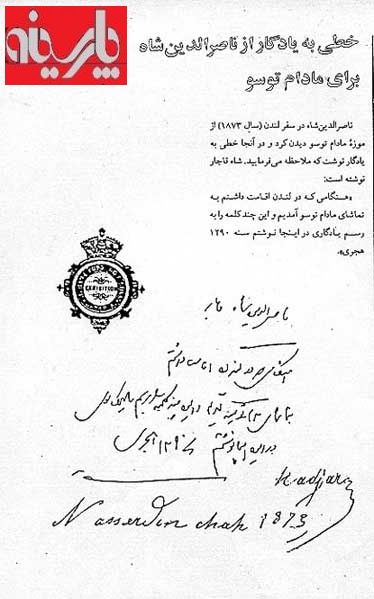 پارسینه
خطی به یادگار از ناصرالدین شاه
برای مادام توسو
ناصرالدین‌شاه در سفر لندن (سال ۱۸۷۳) از
موزهٔ مادام توسو دیدن کرد و در آنجا خطی به
یادگار نوشت که ملاحظه می‌فرمایید. شاه قاجار
نوشته است:
«هنگامی که در لندن اقامت داشتم به
تماشای مادام توسو آمدیم و این چند کلمه را به
رسم یادگاری در اینجا نوشتم سنه ۱۲۹۰
هجری».
EXHIBITION
ناصرالدین شاه قاجار
که در لندن اقامت داشتم
نوشتم ۱۲۹۰ هجری
Kadjar
Nasserdin chah 1873